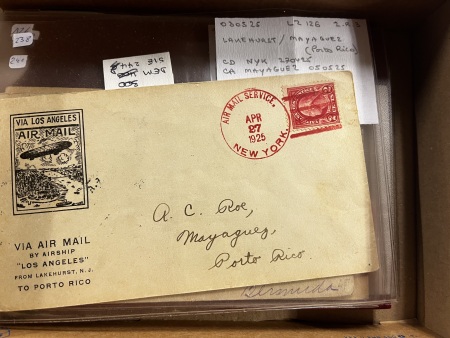 238
030525 LZ 126
LAKEHURST/MAYAGUEZ
(Porto Rico)
CD NYK 270425
CA MAYAGUEZ 050525
VIA LOS ANGELES
AIR MAIL
AIR MAIL SERVICE,
APR
27
1925
NEW YORK.
A. C. Roe,
Mayaguez,
Porto Rico.
VIA AIR MAIL
BY AIRSHIP
"LOS ANGELES"
FROM LAKEHURST, N. J.
TO PORTO RICO
Bermuda